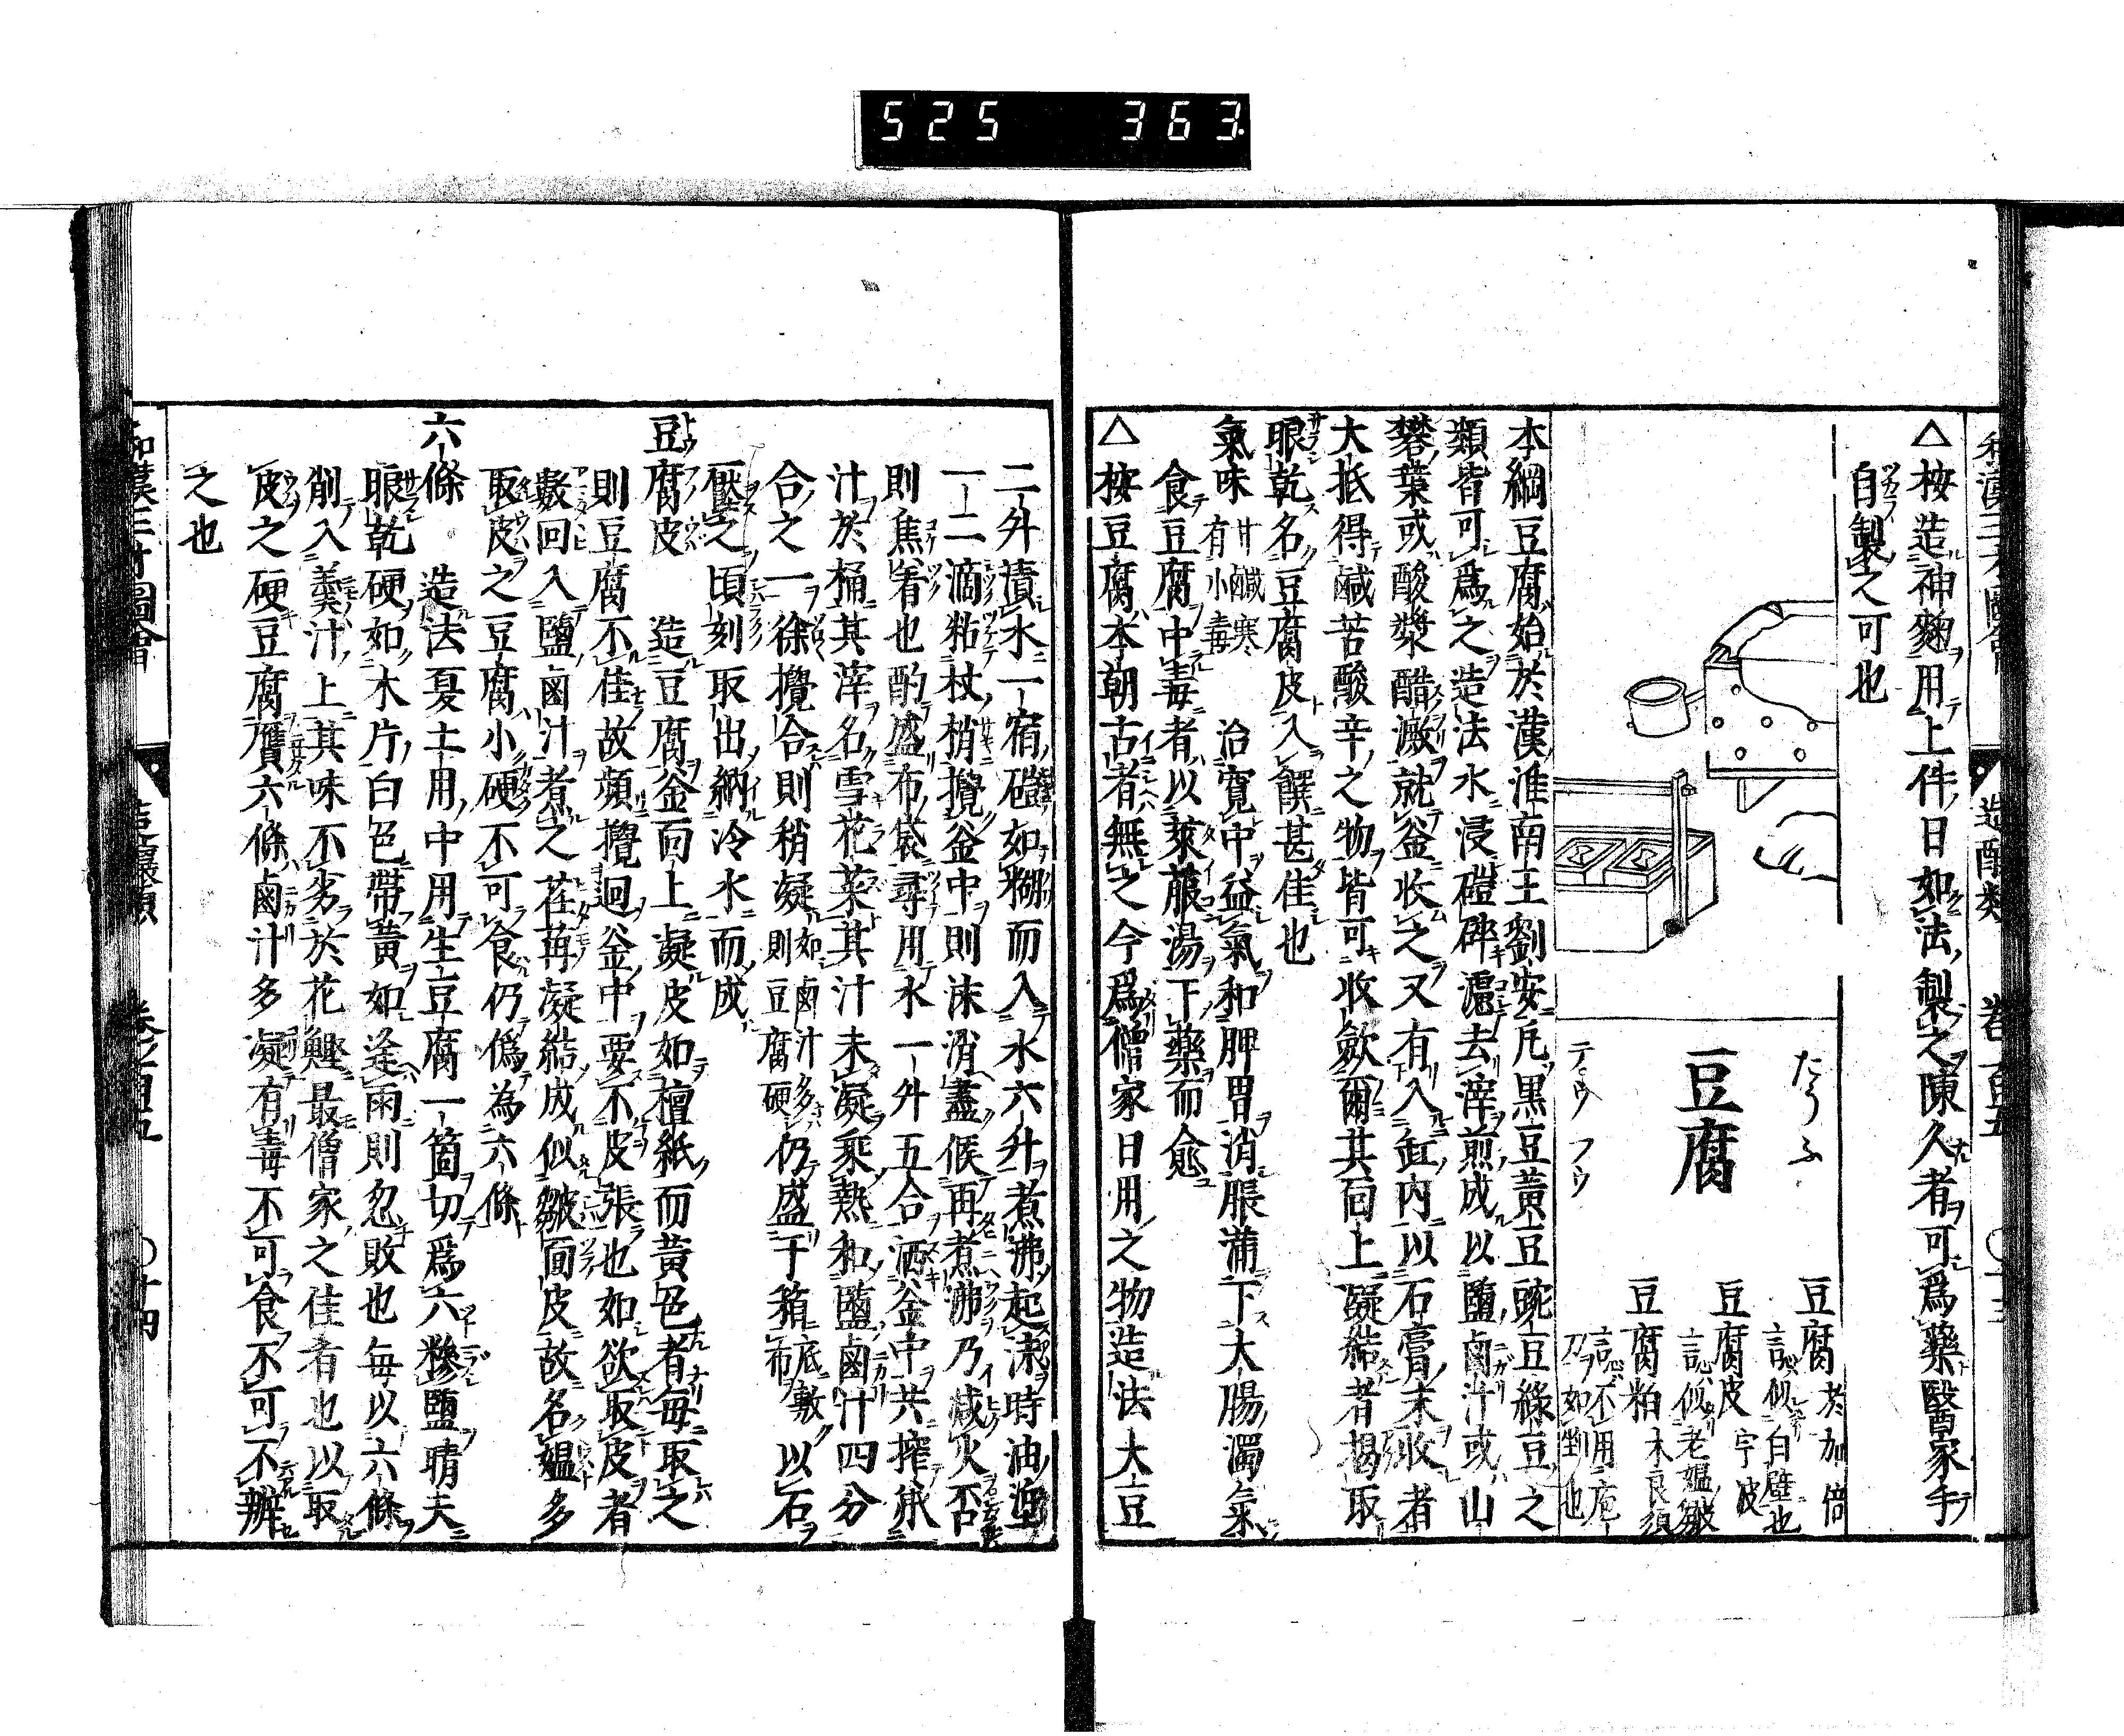 525 363
和漢三才圖會 造釀類 卷百五 〇十三
△按造神麴用上件日如法製之陳久者可爲藥醫家手
自製之可也
豆腐
たうふ
テ゚ウ フウ
豆腐 於加倍
言似白壁也
豆腐皮 宇波
言似老媼皺
豆腐粕 木良須
言不用庖
刀如割也
本綱豆腐始於漢淮南王劉安凡黒豆黃豆豌豆綠豆之
類皆可爲之造法水浸磑碎濾去滓煎成以鹽鹵汁或山
礬葉或酸漿醋澱就釜收之又有入缸內以石膏末收者
大抵得鹹苦酸辛之物皆可收歛爾其面上凝結者揭取
眼乾名豆腐皮入饌甚佳也
氣味 甘鹹寒有小毒 治寬中益氣和脾胃消脹滿下大腸濁氣
食豆腐中毒者以萊菔湯下藥而愈
△按豆腐本朝古者無之今爲僧家日用之物造法大豆
二升漬水一宿磑如糊而入水六升煮沸起沫時油
一二滴粘杖梢攪釜中則沫消盡候再煮沸乃減火否
則焦着也酌盛布袋尋用水一升五合洒釜中共搾
汁於桶其滓名雪花菜其汁未凝乘熱和鹽鹵汁四分
合之一徐攪合則稍凝 如鹵汁多則豆腐硬 仍盛于箱 底敷布 以石
壓之頃刻取出納冷水而成
豆腐皮 造豆腐釜面上凝皮如檀紙而黃色者每取之
則豆腐不佳故頻攪迴釜中要不皮張也如欲取皮者
數回入鹽鹵汁者之荏苒凝結成似皺面皮故名媼多
取皮之豆腐小硬不可食仍僞為六條
六條 造法夏土用中用生豆腐一箇切爲六糝鹽晴天
眼乾硬如木片白色帶黃如逢雨則忽敗也每以六條
削入羹汁上其味不劣於花鰹最僧家之佳肴也以取
皮之硬豆腐贋六條鹵汁多凝有毒不可食不可不辨
之也
和漢三才圖會 造釀類 卷之百五 〇十四